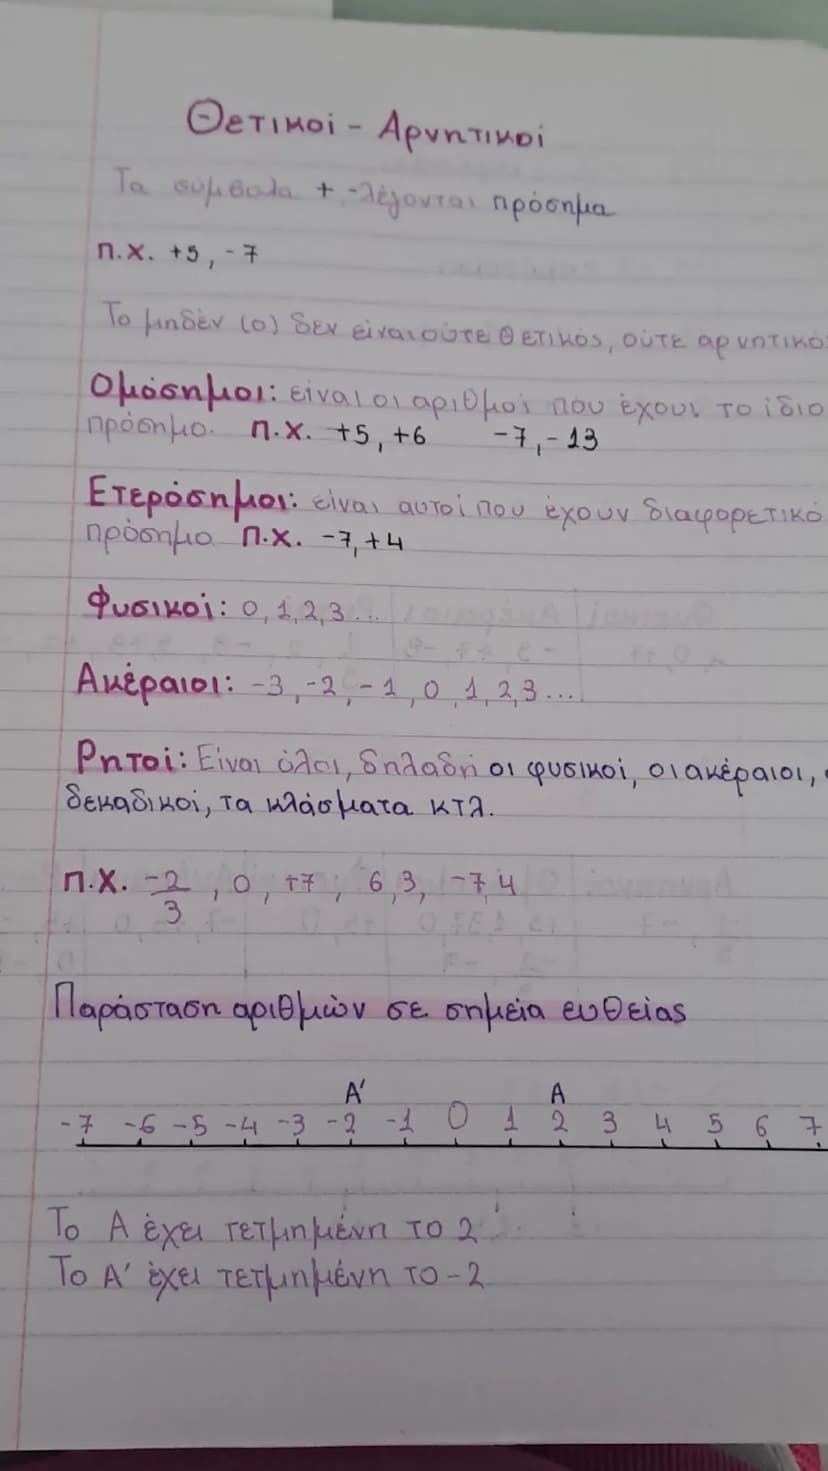 Θετικοί - Αρνητικοί
Τα σύμβολα + - λέγονται πρόσημα
π.χ. +5, -7
Το μηδέν (0) δεν είναι ούτε θετικός, ούτε αρνητικό
Ομόσημοι: είναι οι αριθμοί που έχουν το ίδιο
πρόσημο. π.χ. +5, +6 -7, -13
Ετερόσημοι: είναι αυτοί που έχουν διαφορετικό
πρόσημο π.χ. -7, +4
Φυσικοί: 0, 1, 2, 3 ...
Ακέραιοι: -3, -2, -1, 0, 1, 2, 3 ...
Ρητοί: Είναι όλοι, δηλαδή οι φυσικοί, οι ακέραιοι,
δεκαδικοί, τα κλάσματα κτλ.
π.χ. -2/3, 0, +7, 6,3, -7,4
Παράσταση αριθμών σε σημεία ευθείας
Α' Α
-7 -6 -5 -4 -3 -2 -1 0 1 2 3 4 5 6 7
Το Α έχει τετμημένη το 2
Το Α' έχει τετμημένη το -2